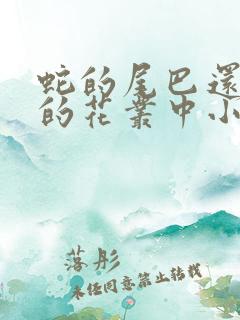 蛇的尾巴還
的花叢中小
落彤
未任同意禁止转载